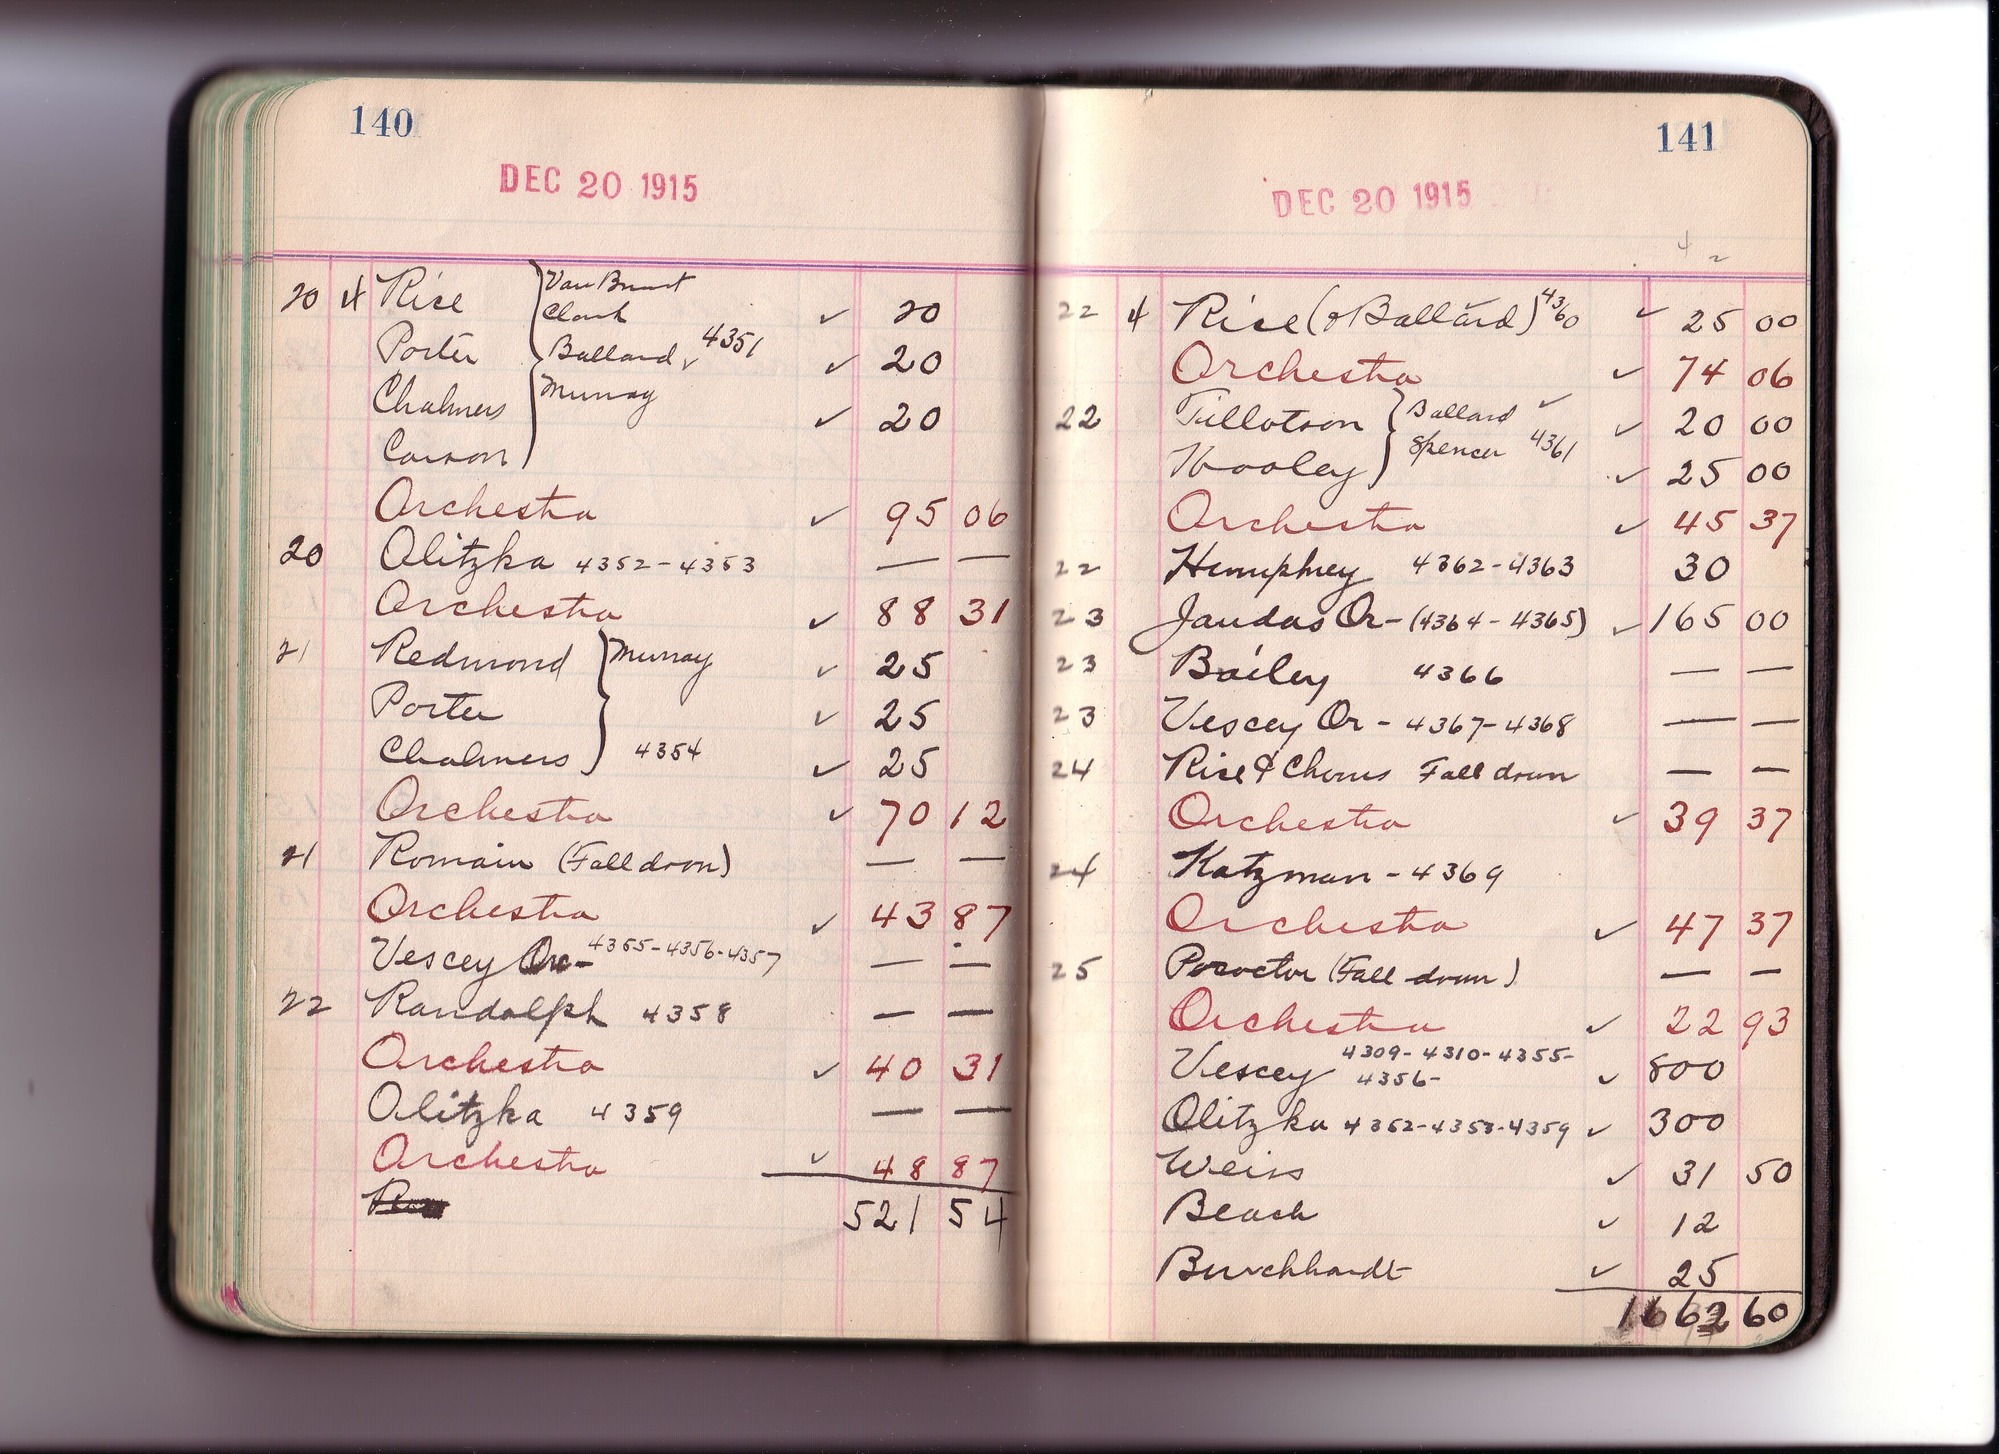 140
DEC 20 1915
20 4 Rise Van Brunt
Clark ✓ 20
Porter Ballard ✓ 4351 ✓ 20
Chalmers Murray ✓ 20
Carson
Orchestra ✓ 95 06
20 Olitzka 4352-4353 — —
Orchestra ✓ 88 31
21 Redmond Murray ✓ 25
Porter ✓ 25
Chalmers 4354 ✓ 25
Orchestra ✓ 70 12
21 Romain (Fall down) — —
Orchestra ✓ 43 87
Vescey Orc- 4355-4356-4357 — —
22 Randolph 4358 — —
Orchestra ✓ 40 31
Olitzka 4359 — —
Orchestra ✓ 48 87
521 54
141
DEC 20 1915
22 4 Rise (& Ballard) 4360 ✓ 25 00
Orchestra ✓ 74 06
22 Tillotson Ballard ✓ ✓ 20 00
Wooley Spencer 4361 ✓ 25 00
Orchestra ✓ 45 37
22 Humphrey 4362-4363 30
23 Jaudas Or- (4364-4365) ✓ 165 00
23 Bailey 4366 — —
23 Vescey Or - 4367-4368 — —
24 Rise & Chorus Fall down — —
Orchestra ✓ 39 37
24 Katzman - 4369
Orchestra ✓ 47 37
25 Pococtor (Fall down) — —
Orchestra ✓ 22 93
Vescey 4309-4310-4355-
4356- ✓ 800
Olitzka 4352-4353-4359 ✓ 300
Weiss ✓ 31 50
Beach ✓ 12
Burchhardt ✓ 25
1662 60